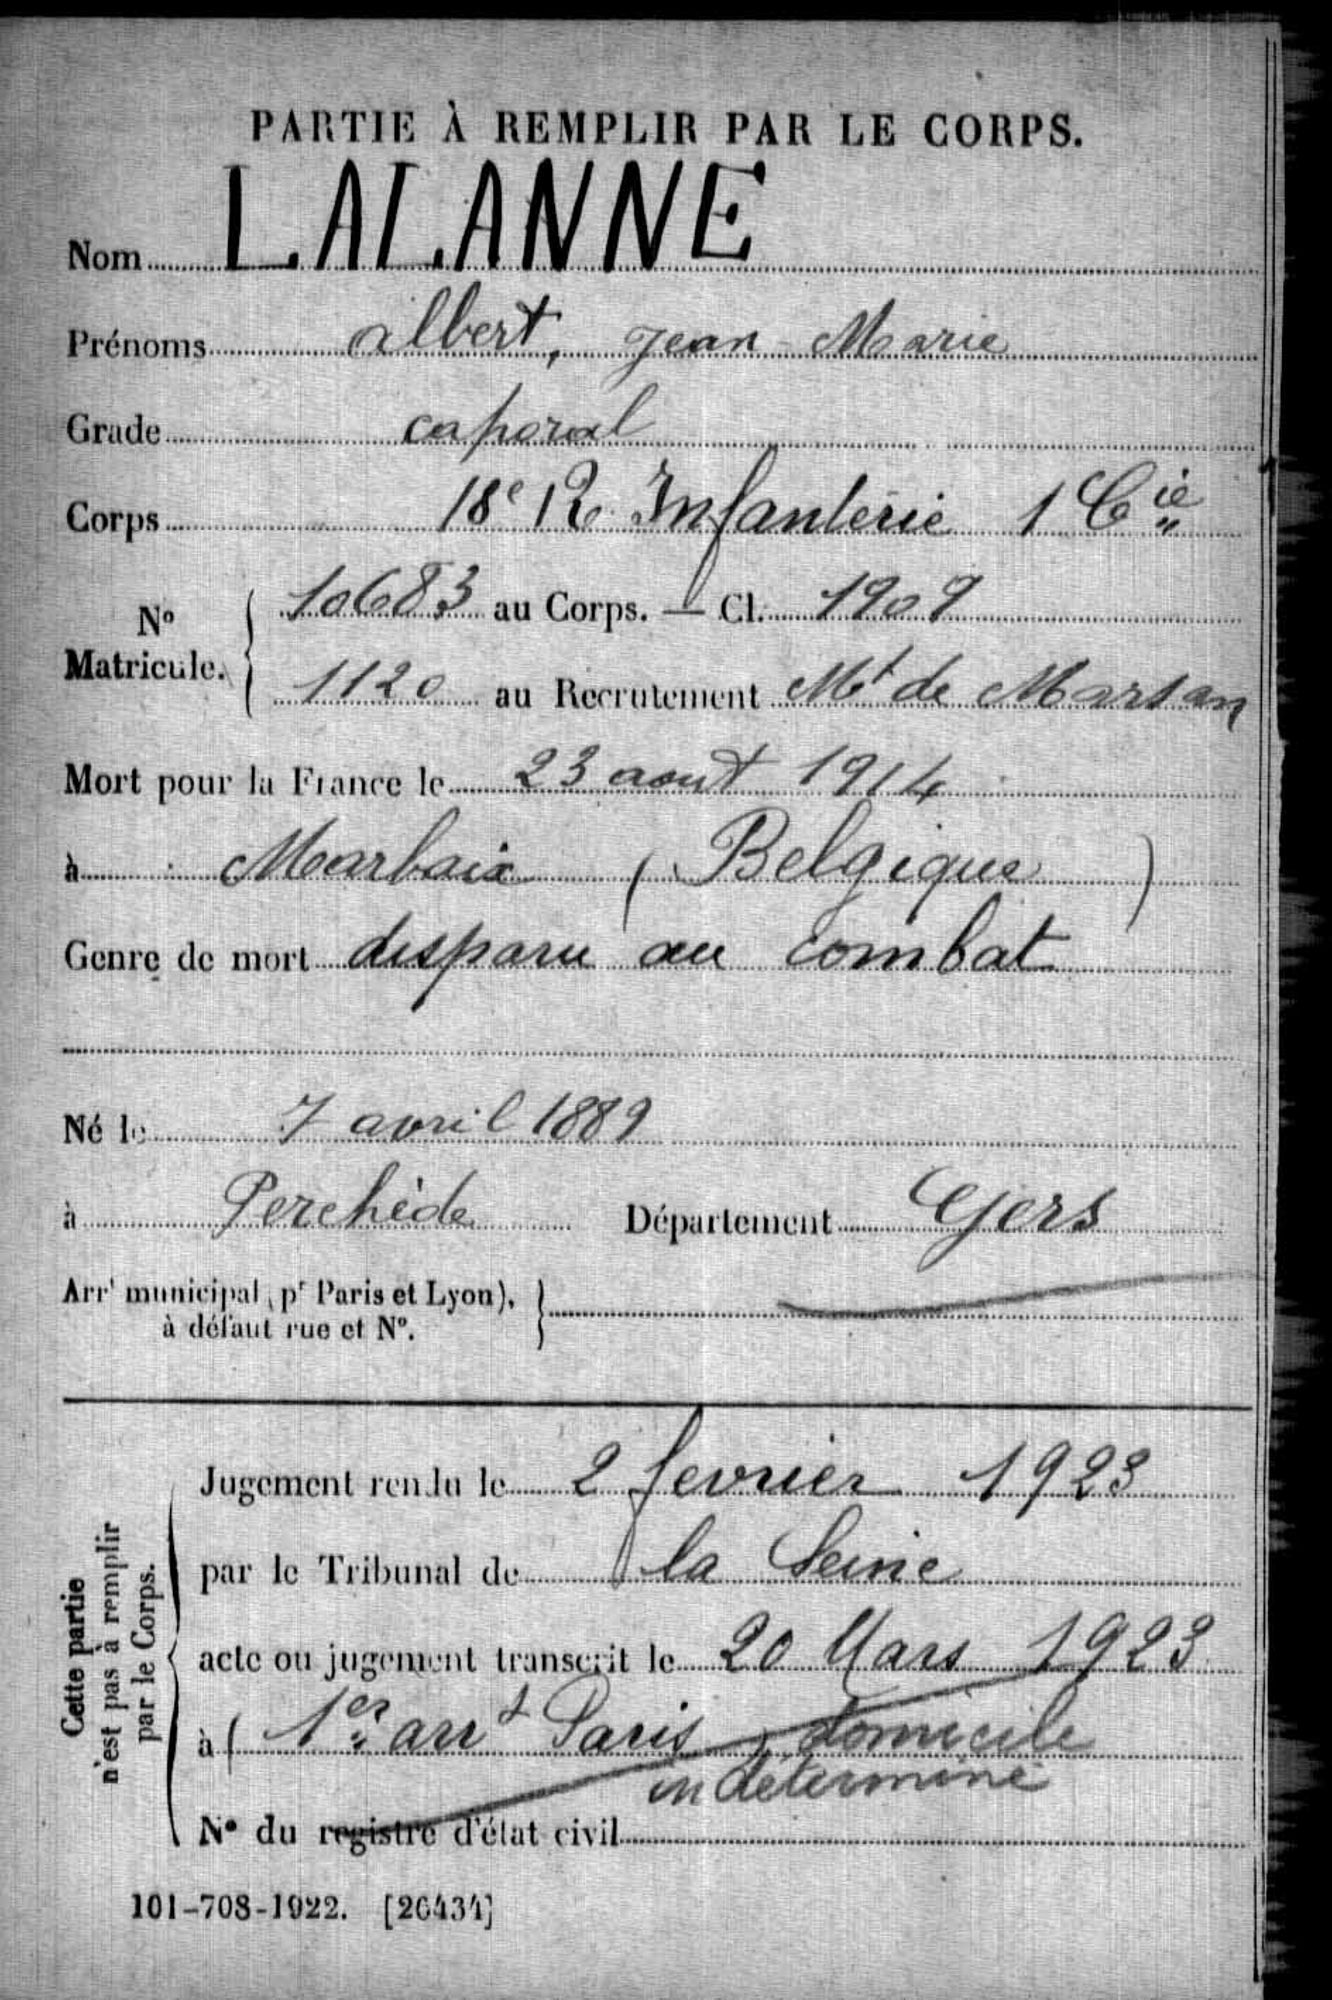 PARTIE À REMPLIR PAR LE CORPS.
Nom LALANNE
Prénoms Albert, Jean-Marie
Grade caporal
Corps 18e R. Infanterie 1 Cie
No Matricule. 10683 au Corps. — Cl. 1909
1120 au Recrutement Mt de Marsan
Mort pour la France le 23 aout 1914
à Marbaix (Belgique)
Genre de mort disparu au combat
Né le 7 avril 1889
à Perchède Département Gers
Arrt municipal (pr Paris et Lyon),
à défaut rue et No.
Cette partie
n'est pas à remplir
par le Corps.
Jugement rendu le 2 fevrier 1923
par le Tribunal de la Seine
acte ou jugement transcrit le 20 Mars 1923
à (1er arrt Paris, domicile
indéterminé
No du registre d'état civil
101-708-1922. [26434]